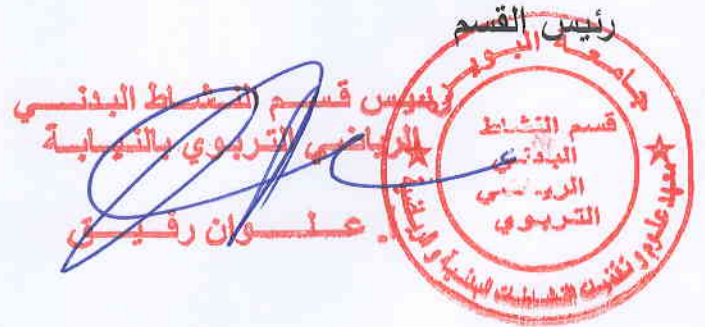 رئيس القسم
رئيس قسم النشاط البدنـــي
الرياضي التربوي بالنيـابـة
د. عـلـــوان رفـيـــق
جامعة البويرة
قسم النشاط
البدني
الرياضي
التربوي
معهد علوم و تقنيات النشاطات البدنية و الرياضية